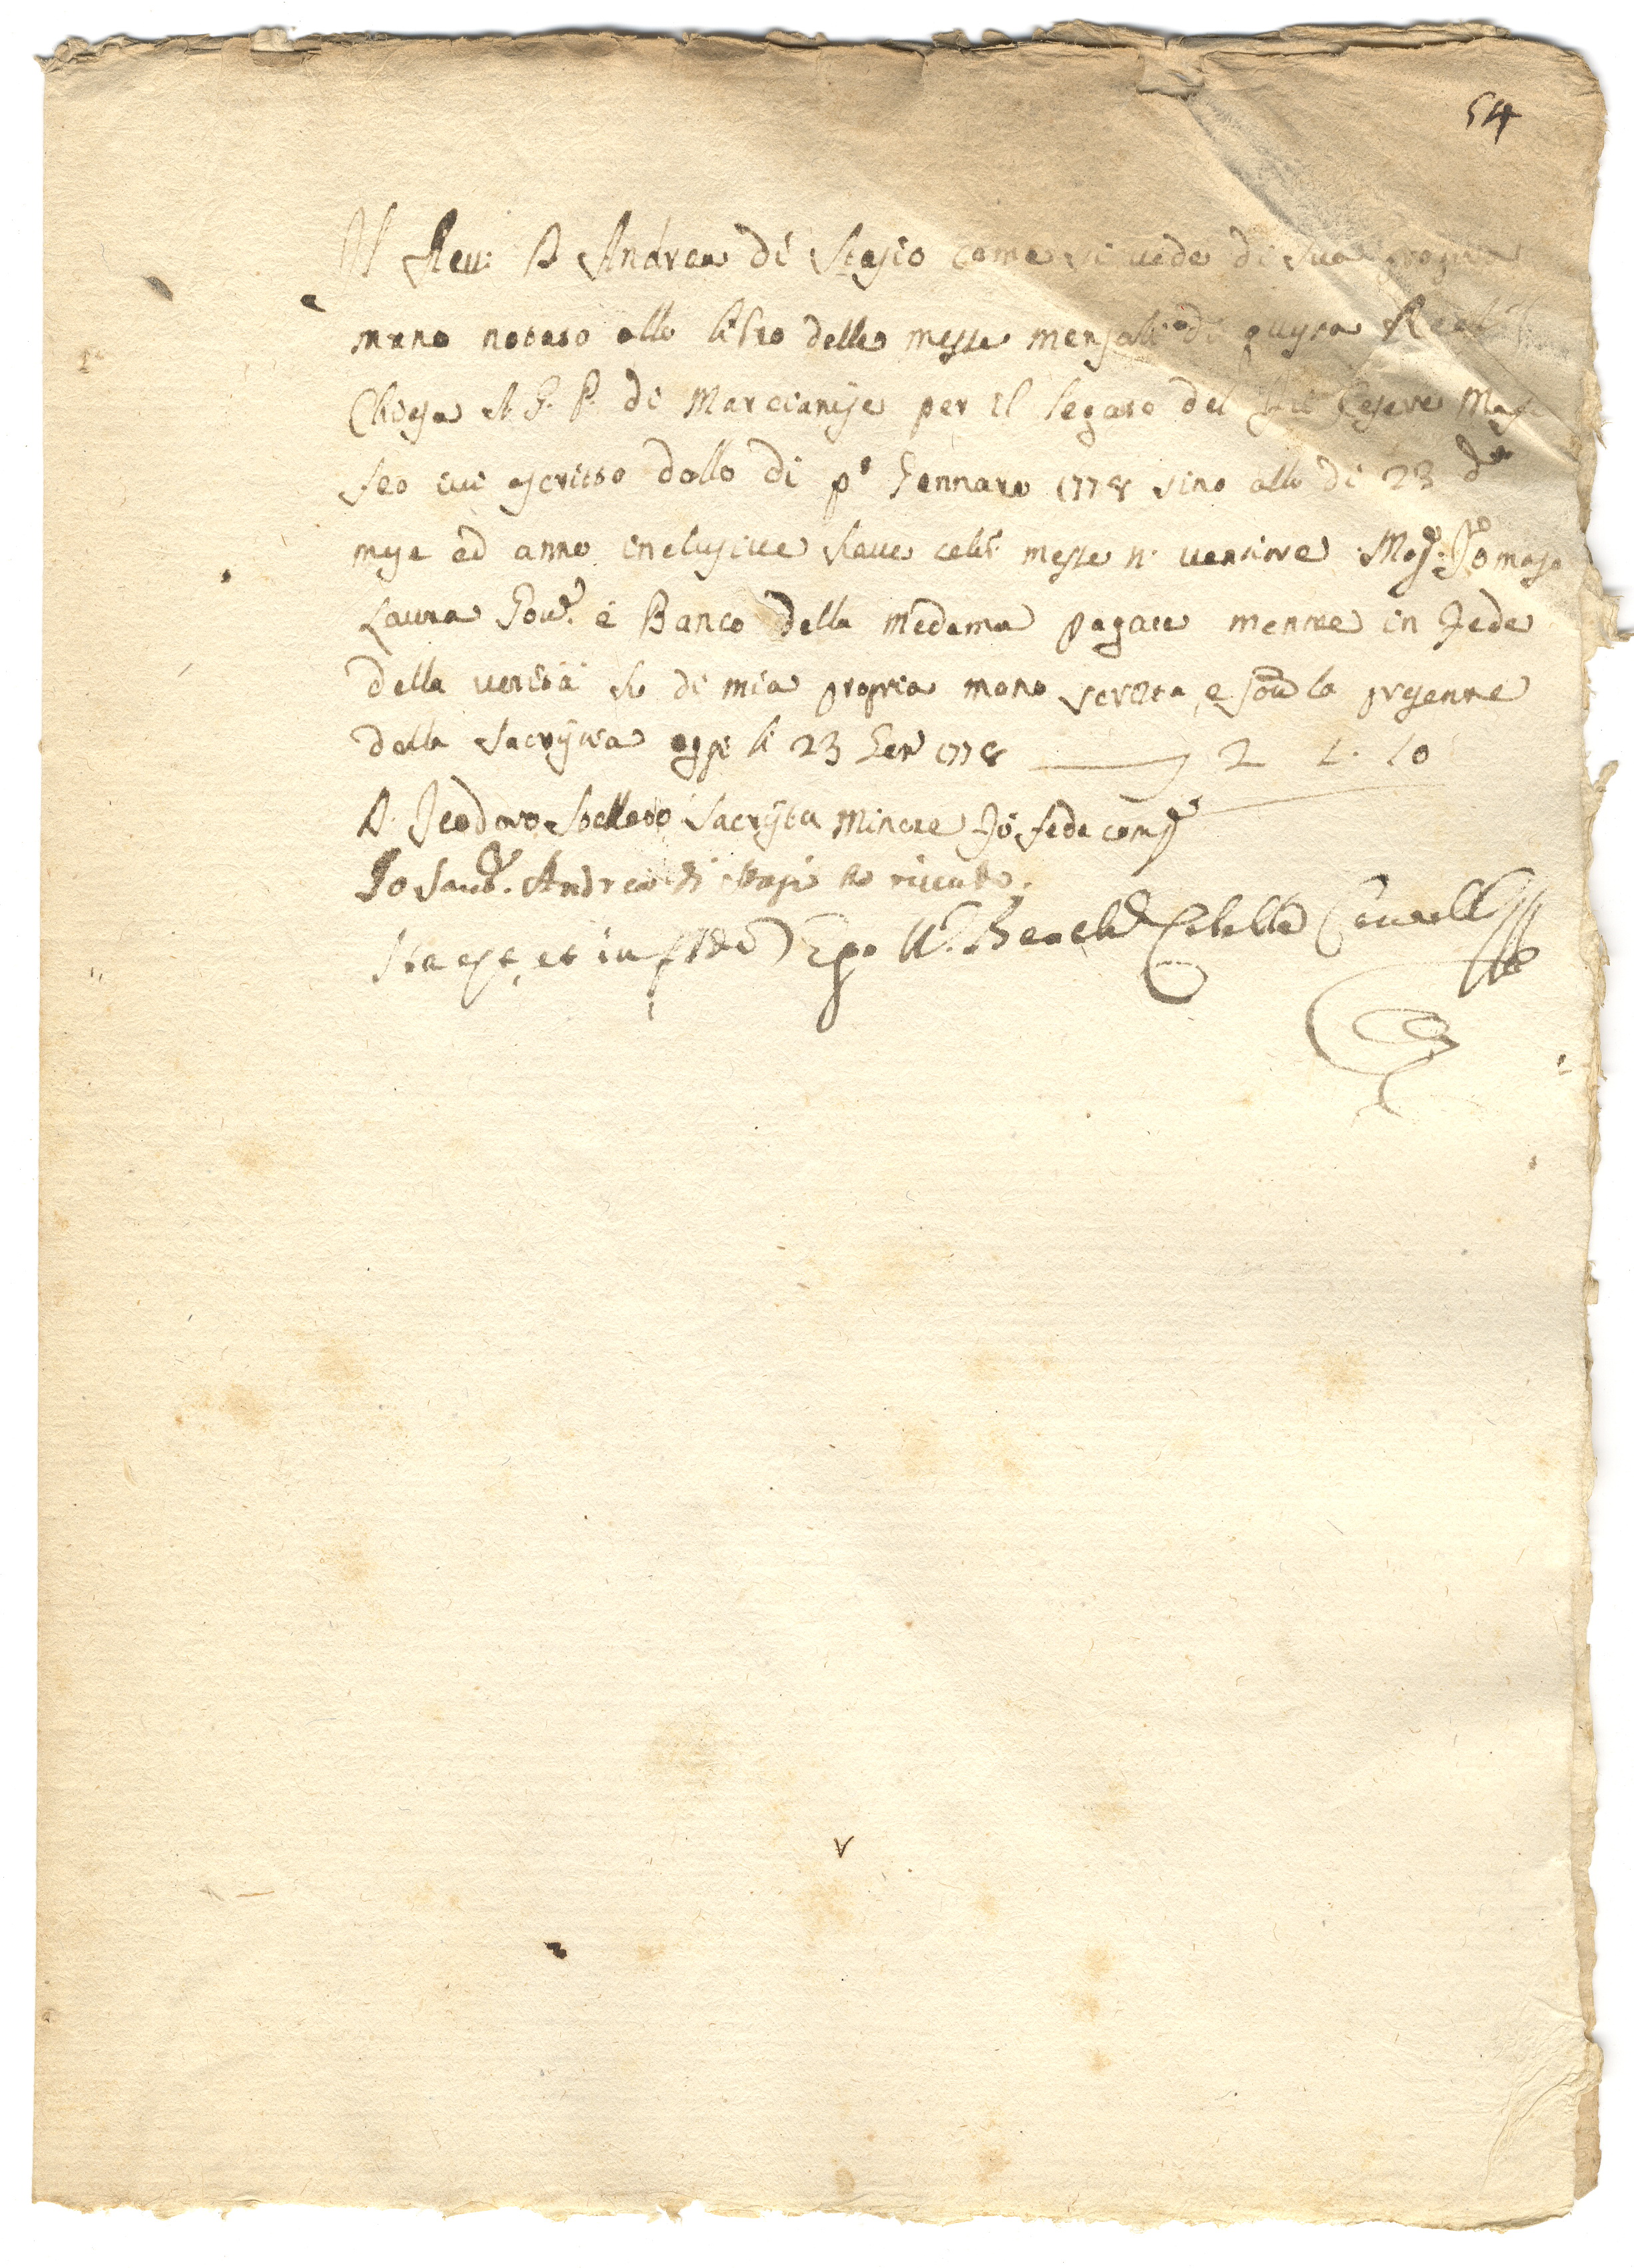 54
Il Reu: D Andrea di Stasio come si vede di sua propria
mano notato allo libro delle messe mensali di questa Real
Chiesa A. G. P. di Marcianise per il legato del Cesere Maf
feo ivi ascritto dallo di p° Gennaro 1778 sino allo di 23 d°
mese ed anno inclusive have celt: messe n: ventitre Mag: Tomaso
Laura Gou: e Banco della medema pagate mentre in fede
della verità ho di mia propria mano scritta, e la presente
della sacristia oggi li 23 Gen 1778 2 1. 10
D. Teodoro Sacrista Minore Fò fede come
Io Andrea di Stasi ho ricevuto
Ita est, et in fidem Ego